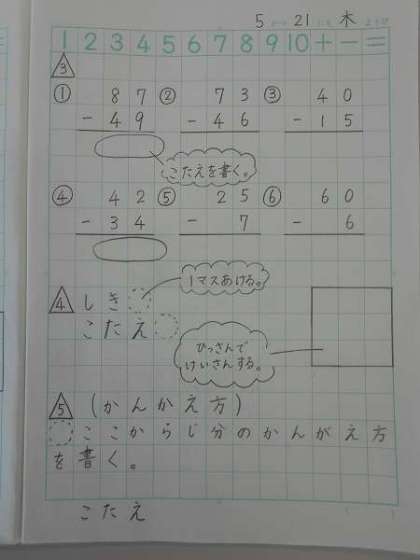 5 21 木
1 2 3 4 5 6 7 8 9 10 + − =
3
① 87 ② 73 ③ 40
− 49 − 46 − 15
こたえを書く。
④ 42 ⑤ 25 ⑥ 60
− 34 − 7 − 6
1マスあける。
4 しき
こたえ
ひっさんで
けいさんする。
5 (かんかえ方)
ここからじ分のかんがえ方
を書く。
こたえ